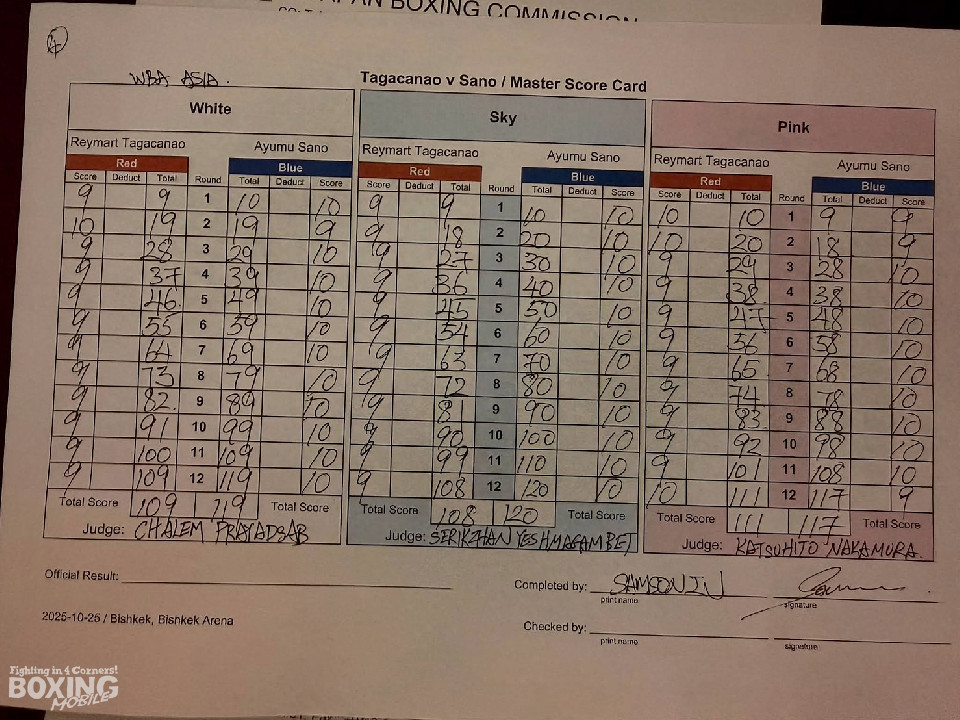 APAN BOXING COMMISSION
WBA ASIA.
Tagacanao v Sano / Master Score Card
White Sky Pink
Reymart Tagacanao Ayumu Sano Reymart Tagacanao Ayumu Sano Reymart Tagacanao Ayumu Sano
Red Blue Red Blue Red Blue
Score Deduct Total Round Total Deduct Score Score Deduct Total Round Total Deduct Score Score Deduct Total Round Total Deduct Score
9 9 1 10 10 9 9 1 10 10 10 10 1 9 9
10 19 2 19 9 9 18 2 20 10 10 20 2 18 9
9 28 3 29 10 9 27 3 30 10 9 29 3 28 10
9 37 4 39 10 9 36 4 40 10 9 38 4 38 10
9 46 5 49 10 9 45 5 50 10 9 47 5 48 10
9 55 6 59 10 9 54 6 60 10 9 56 6 58 10
9 64 7 69 10 9 63 7 70 10 9 65 7 68 10
9 73 8 79 10 9 72 8 80 10 9 74 8 78 10
9 82 9 89 10 9 81 9 90 10 9 83 9 88 10
9 91 10 99 10 9 90 10 100 10 9 92 10 98 10
9 100 11 109 10 9 99 11 110 10 9 101 11 108 10
9 109 12 119 10 9 108 12 120 10 10 111 12 117 9
Total Score 109 119 Total Score Total Score 108 120 Total Score Total Score 111 117 Total Score
Judge: CHALEM PRAYADSAB Judge: SERIKZHAN YESHMAGAMBET Judge: KATSUHITO NAKAMURA
Official Result: Completed by: SAMSON IU
print name signature
2025-10-25 / Bishkek, Bishkek Arena
Checked by:
print name signature
Fighting in 4 Corners!
BOXING
MOBILE